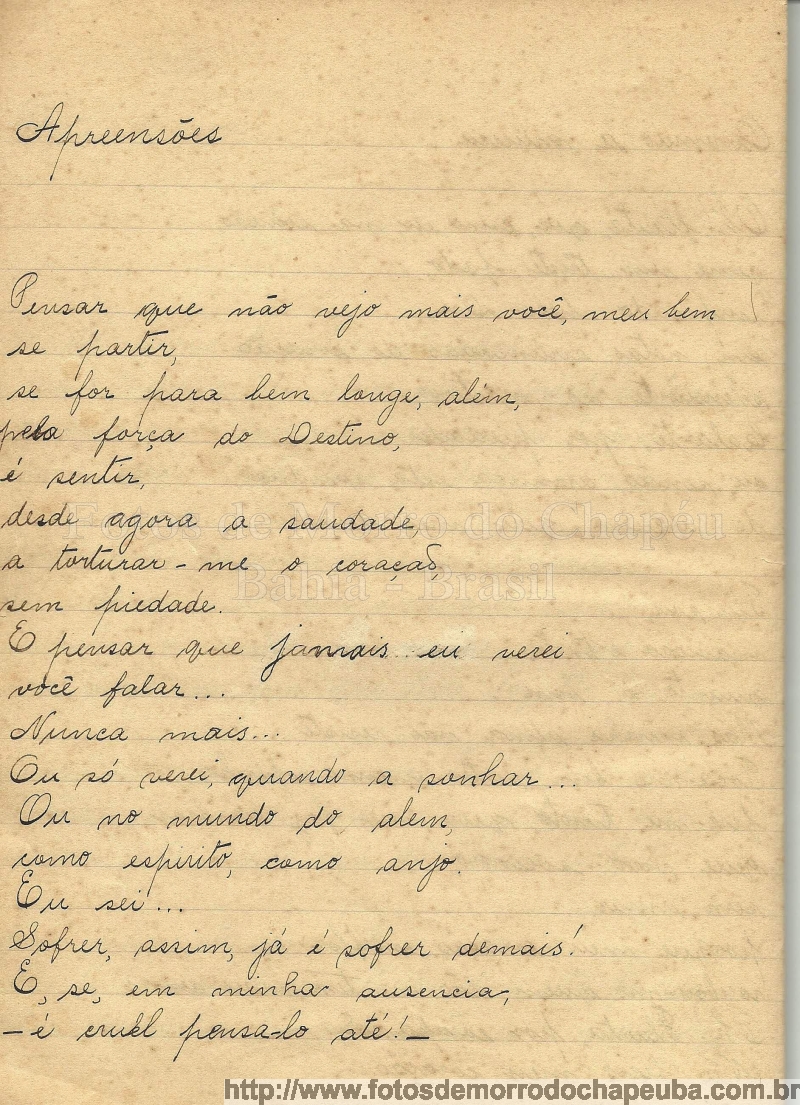 Apreensões
Pensar que não vejo mais você, meu bem
se partir,
se for para bem longe, além,
pela força do Destino,
é sentir,
desde agora a saudade,
Fotos de Morro do Chapéu
a torturar-me o coração,
Bahia - Brasil
sem piedade.
E pensar que jamais eu verei
você falar...
Nunca mais...
Ou só verei, quando a sonhar...
Ou no mundo do alem,
como espirito, como anjo.
Eu sei...
Sofrer, assim, já é sofrer demais!
E, se, em minha ausencia,
- é cruél pensa-lo até! -
http://www.fotosdemorrodochapeuba.com.br